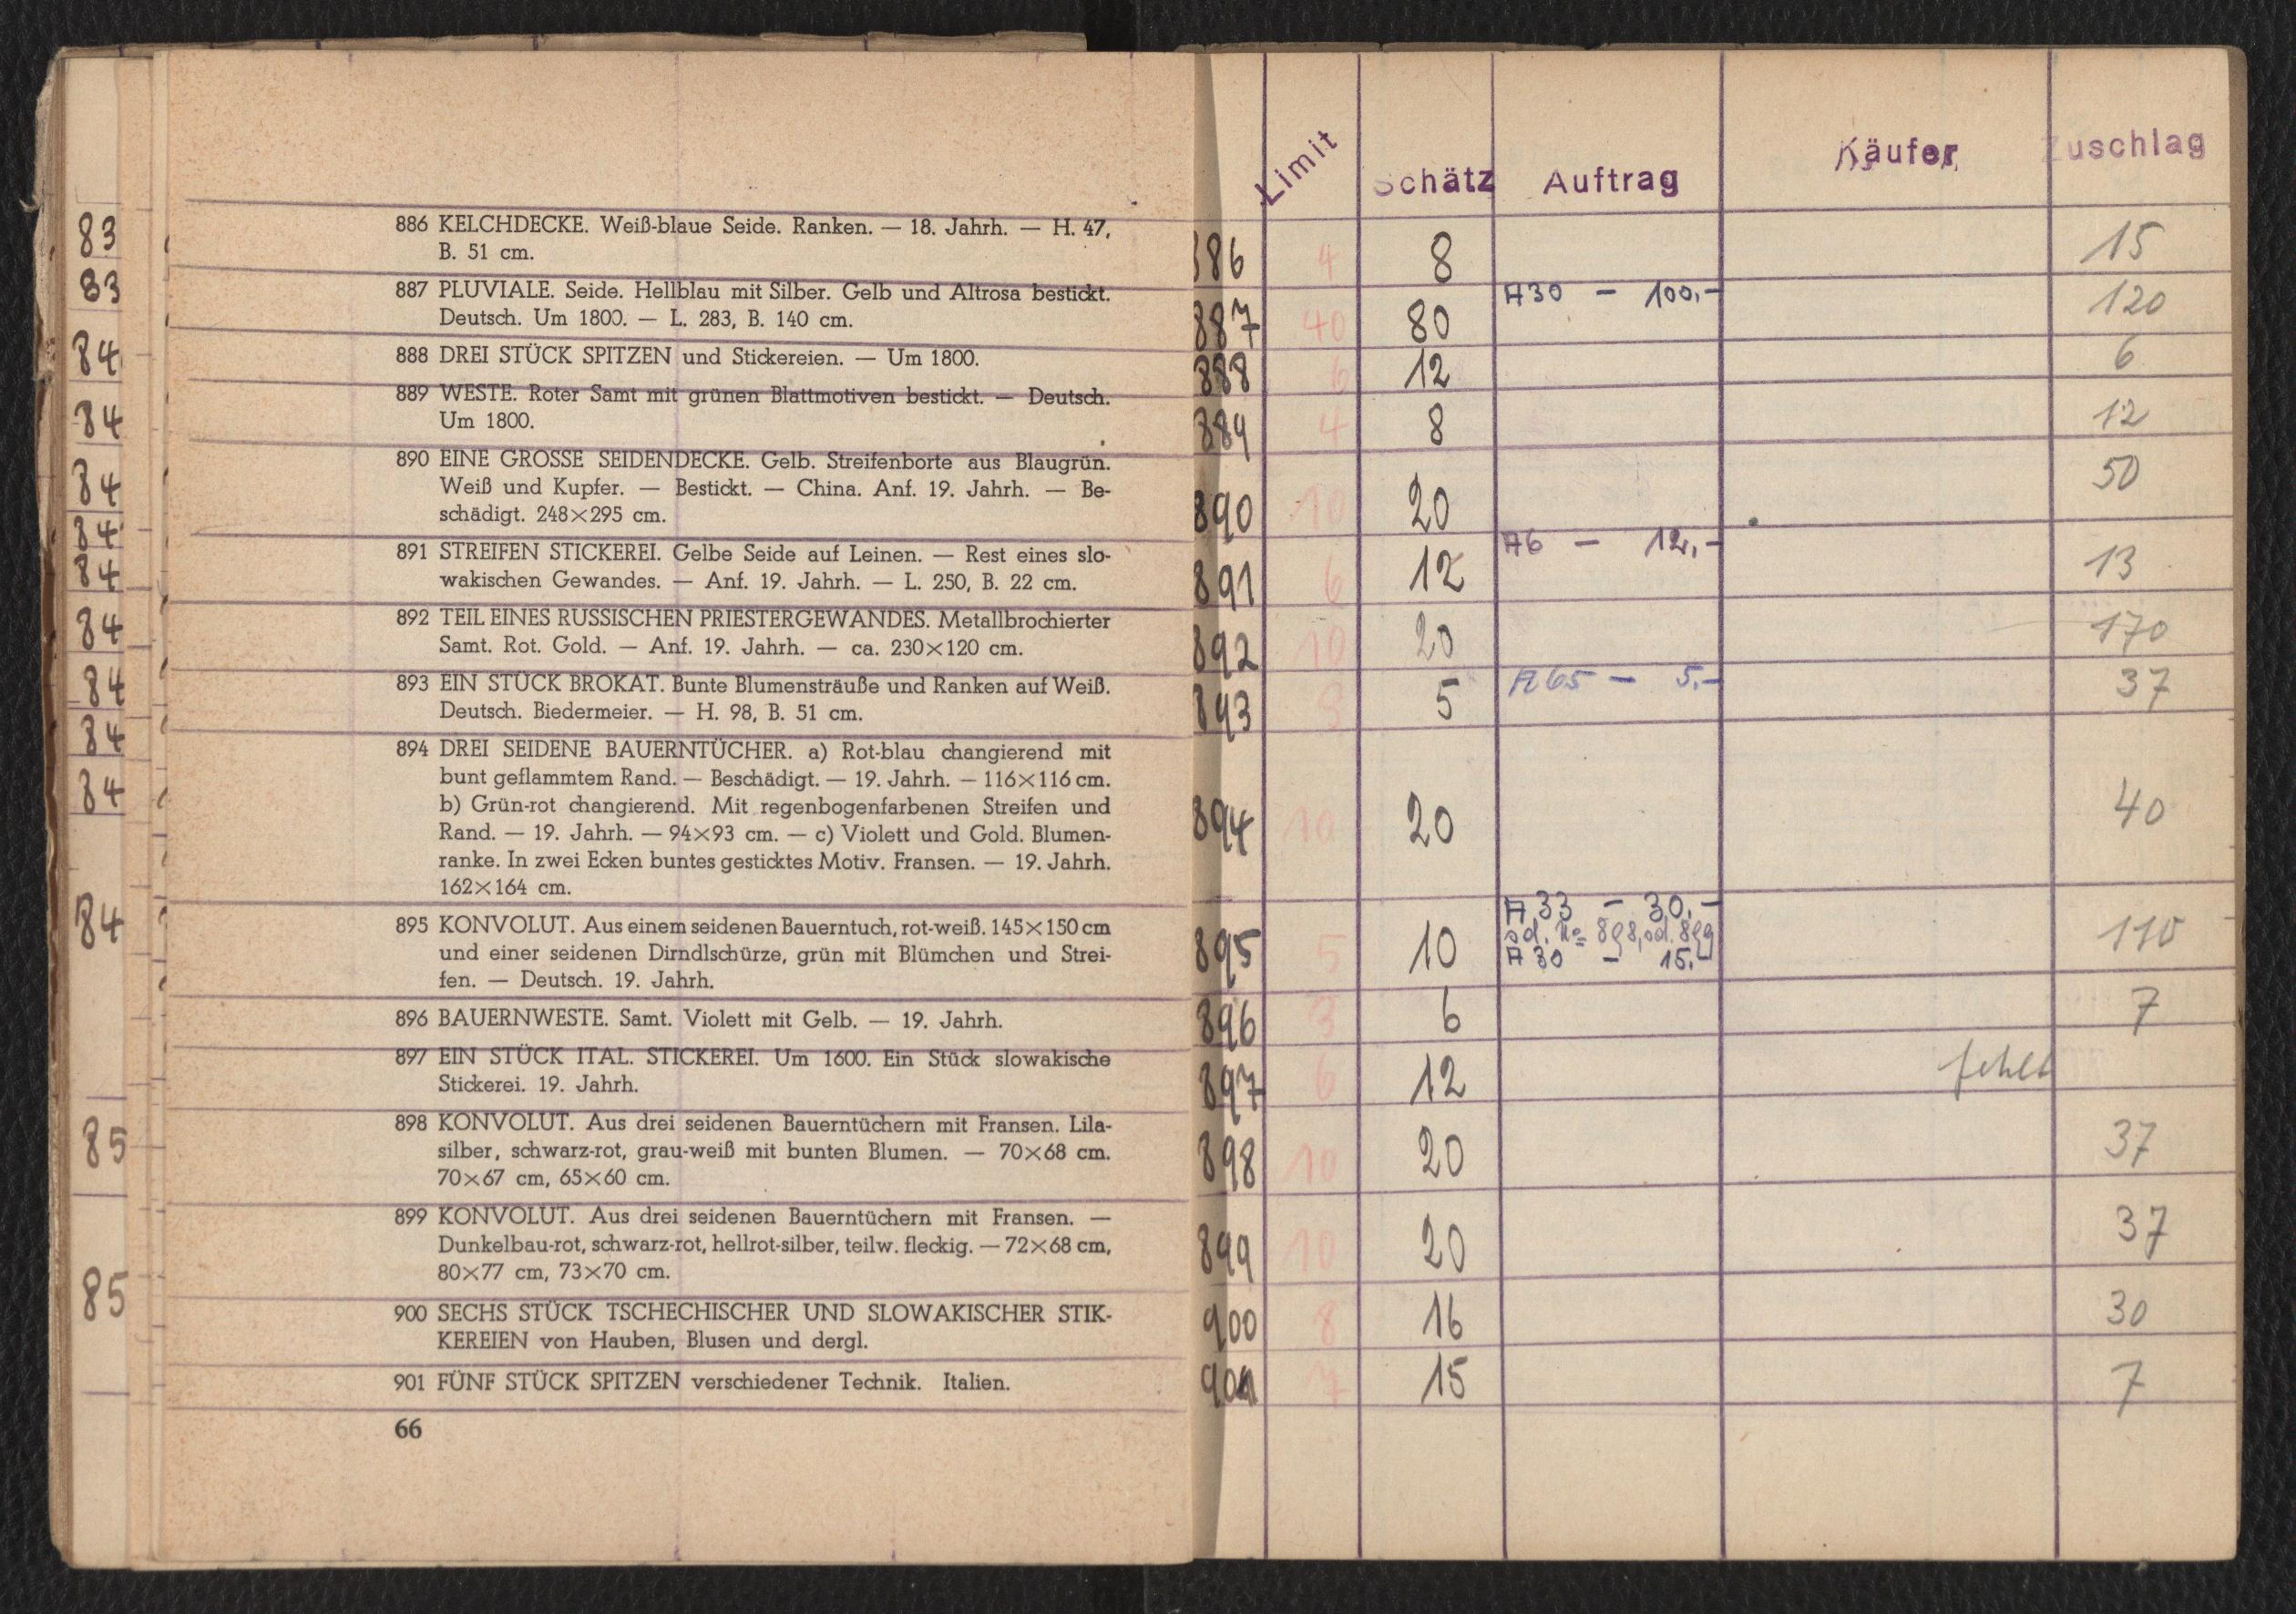 83
83
84
84
84
84
84
84
84
84
84
84
85
85
886 KELCHDECKE. Weiß-blaue Seide. Ranken. — 18. Jahrh. — H. 47,
B. 51 cm.
887 PLUVIALE. Seide. Hellblau mit Silber. Gelb und Altrosa bestickt.
Deutsch. Um 1800. — L. 283, B. 140 cm.
888 DREI STÜCK SPITZEN und Stickereien. — Um 1800.
889 WESTE. Roter Samt mit grünen Blattmotiven bestickt. — Deutsch.
Um 1800.
890 EINE GROSSE SEIDENDECKE. Gelb. Streifenborte aus Blaugrün.
Weiß und Kupfer. — Bestickt. — China. Anf. 19. Jahrh. — Be-
schädigt. 248×295 cm.
891 STREIFEN STICKEREI. Gelbe Seide auf Leinen. — Rest eines slo-
wakischen Gewandes. — Anf. 19. Jahrh. — L. 250, B. 22 cm.
892 TEIL EINES RUSSISCHEN PRIESTERGEWANDES. Metallbrochierter
Samt. Rot. Gold. — Anf. 19. Jahrh. — ca. 230×120 cm.
893 EIN STÜCK BROKAT. Bunte Blumensträuße und Ranken auf Weiß.
Deutsch. Biedermeier. — H. 98, B. 51 cm.
894 DREI SEIDENE BAUERNTÜCHER. a) Rot-blau changierend mit
bunt geflammtem Rand. — Beschädigt. — 19. Jahrh. — 116×116 cm.
b) Grün-rot changierend. Mit regenbogenfarbenen Streifen und
Rand. — 19. Jahrh. — 94×93 cm. — c) Violett und Gold. Blumen-
ranke. In zwei Ecken buntes gesticktes Motiv. Fransen. — 19. Jahrh.
162×164 cm.
895 KONVOLUT. Aus einem seidenen Bauerntuch, rot-weiß. 145×150 cm
und einer seidenen Dirndlschürze, grün mit Blümchen und Strei-
fen. — Deutsch. 19. Jahrh.
896 BAUERNWESTE. Samt. Violett mit Gelb. — 19. Jahrh.
897 EIN STÜCK ITAL. STICKEREI. Um 1600. Ein Stück slowakische
Stickerei. 19. Jahrh.
898 KONVOLUT. Aus drei seidenen Bauerntüchern mit Fransen. Lila-
silber, schwarz-rot, grau-weiß mit bunten Blumen. — 70×68 cm.
70×67 cm, 65×60 cm.
899 KONVOLUT. Aus drei seidenen Bauerntüchern mit Fransen. —
Dunkelbau-rot, schwarz-rot, hellrot-silber, teilw. fleckig. — 72×68 cm,
80×77 cm, 73×70 cm.
900 SECHS STÜCK TSCHECHISCHER UND SLOWAKISCHER STIK-
KEREIEN von Hauben, Blusen und dergl.
901 FÜNF STÜCK SPITZEN verschiedener Technik. Italien.
66
Limit Schätz Auftrag Käufer Zuschlag
886 4 8 15
887 40 80 A30 — 100,- 120
888 6 12 6
889 4 8 12
890 10 20 50
891 6 12 A6 — 12,- 13
892 10 20 170
893 3 5 A65 — 5.- 37
894 10 20 40
A 33 — 30.-
895 5 10 od. No 898, od. 899 110
A 30 — 15.-
896 3 6 7
897 6 12 fehlt
898 10 20 37
899 10 20 37
900 8 16 30
901 7 15 7